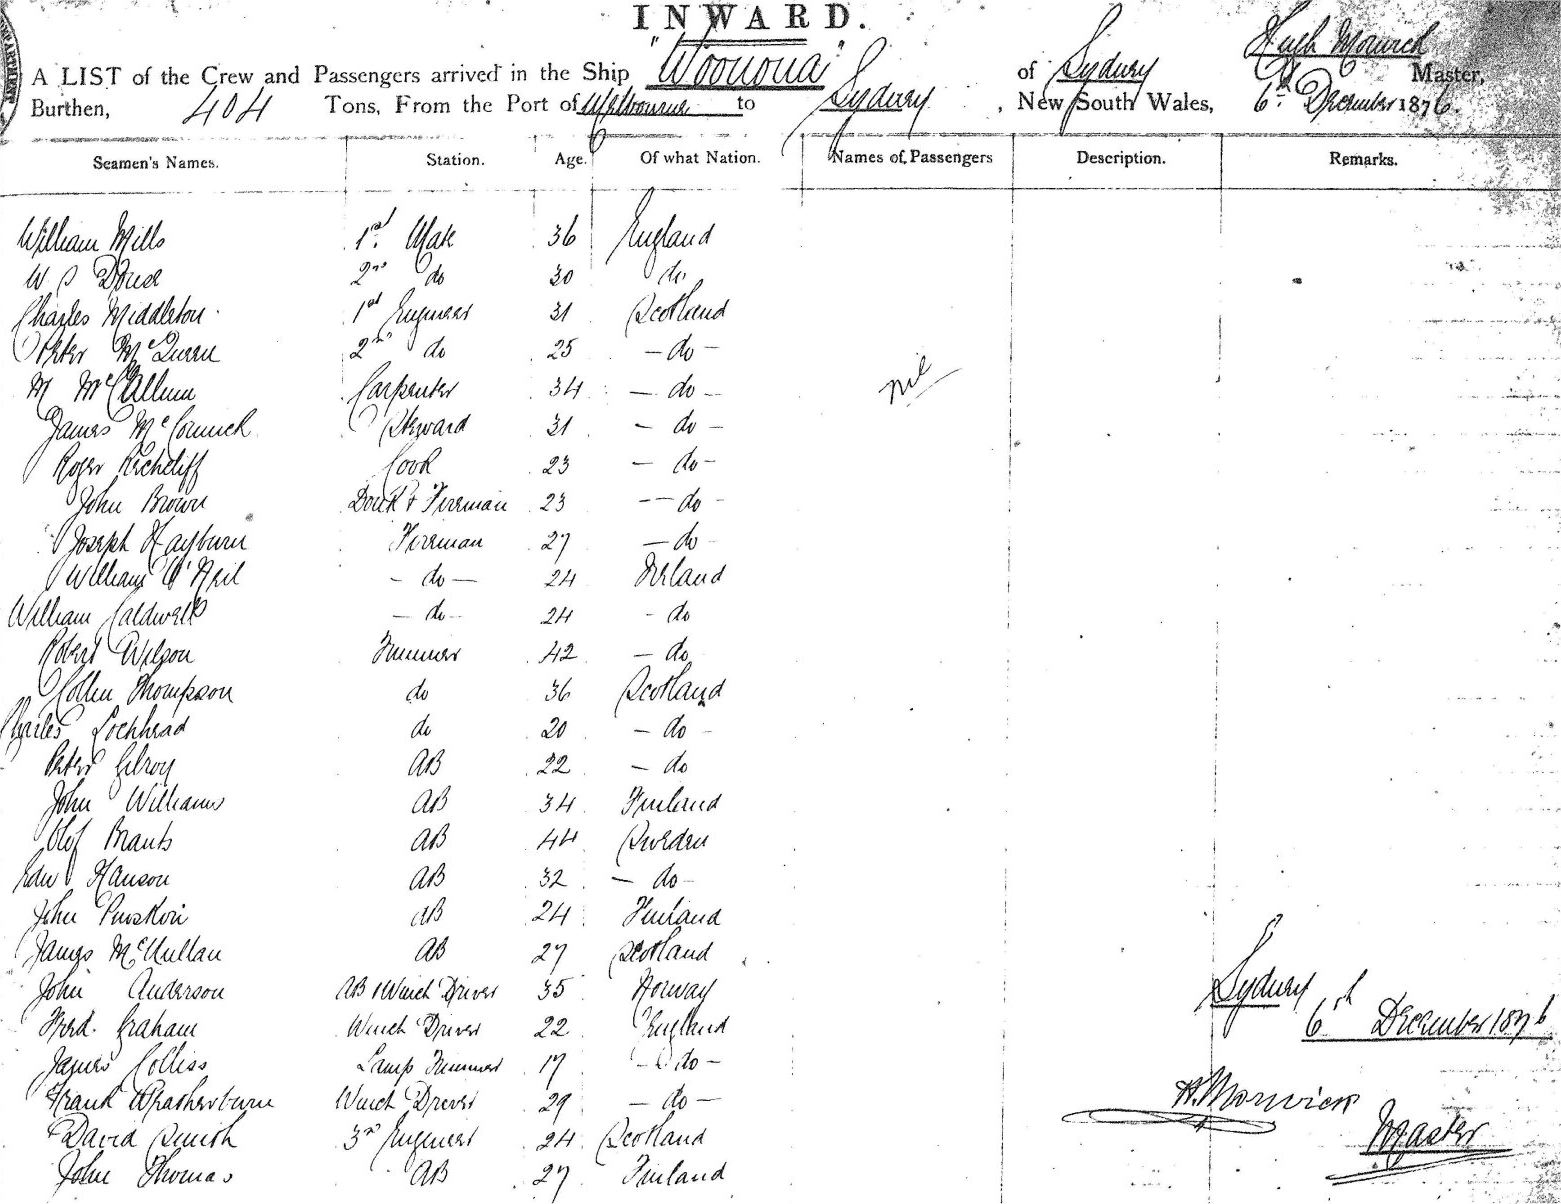 INWARD.
A LIST of the Crew and Passengers arrived in the Ship "Woonona" of Sydney Hugh Morwick Master,
Burthen, 404 Tons, From the Port of Melbourne to Sydney, New South Wales, 6th December 1876.
Seamen's Names. Station. Age. Of what Nation. Names of Passengers Description. Remarks.
William Mills 1st Mate 36 England
W S 2nd do 30 do
Charles Middleton 1st Engineer 31 Scotland
Peter McQueen 2nd do 25 - do -
M McCallum Carpenter 34 - do -
nil
James McCormick Steward 31 - do -
Roger Cook 23 - do -
John Brown & Fireman 23 - do -
Joseph Hayburn Fireman 27 - do -
William O'Neil - do - 24 Ireland
William Caldwell - do - 24 - do
Robert Wilson Trimmer 42 - do
Collin Thompson do 36 Scotland
Charles Lochhead do 20 - do -
Peter Gilroy AB 22 - do
John Williams AB 34 Finland
Olof Brants AB 44 Sweden
Edw Hanson AB 32 - do -
John AB 24 Finland
James McMillan AB 27 Scotland
John Anderson AB & Winch Driver 35 Norway
Fred. Graham Winch Driver 22 England
James Colliss Lamp Trimmer 17 - do -
Frank Weatherburn Winch Driver 29 - do -
David Smith 3rd Engineer 24 Scotland
John Thomas AB 27 Finland
Sydney
6th December 1876
H. Morwick
Master